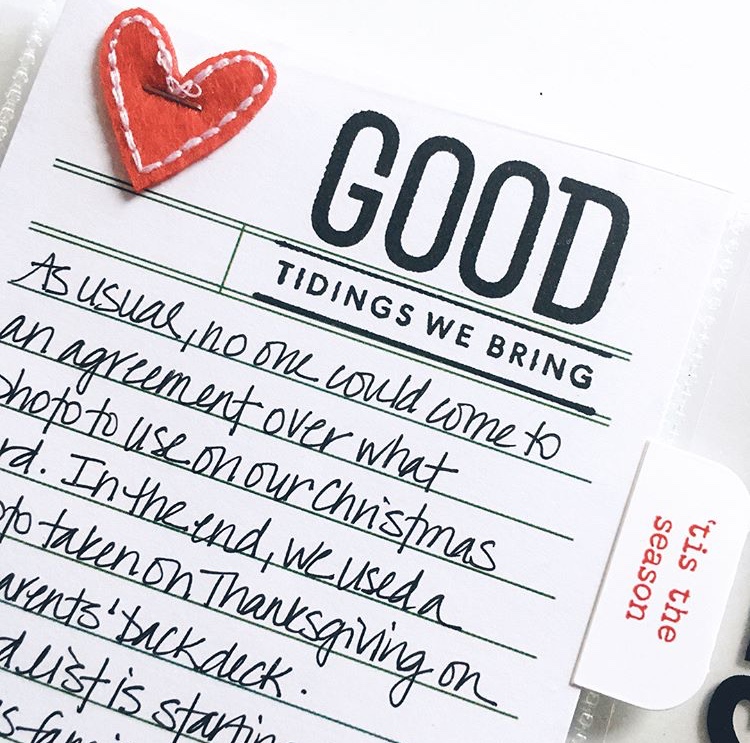 GOOD
TIDINGS WE BRING
As usual, no one could come to
an agreement over what
photo to use on our Christmas
rd. In the end, we used a
oto taken on Thanksgiving on
arents' back deck.
d list is startin
'tis the
season